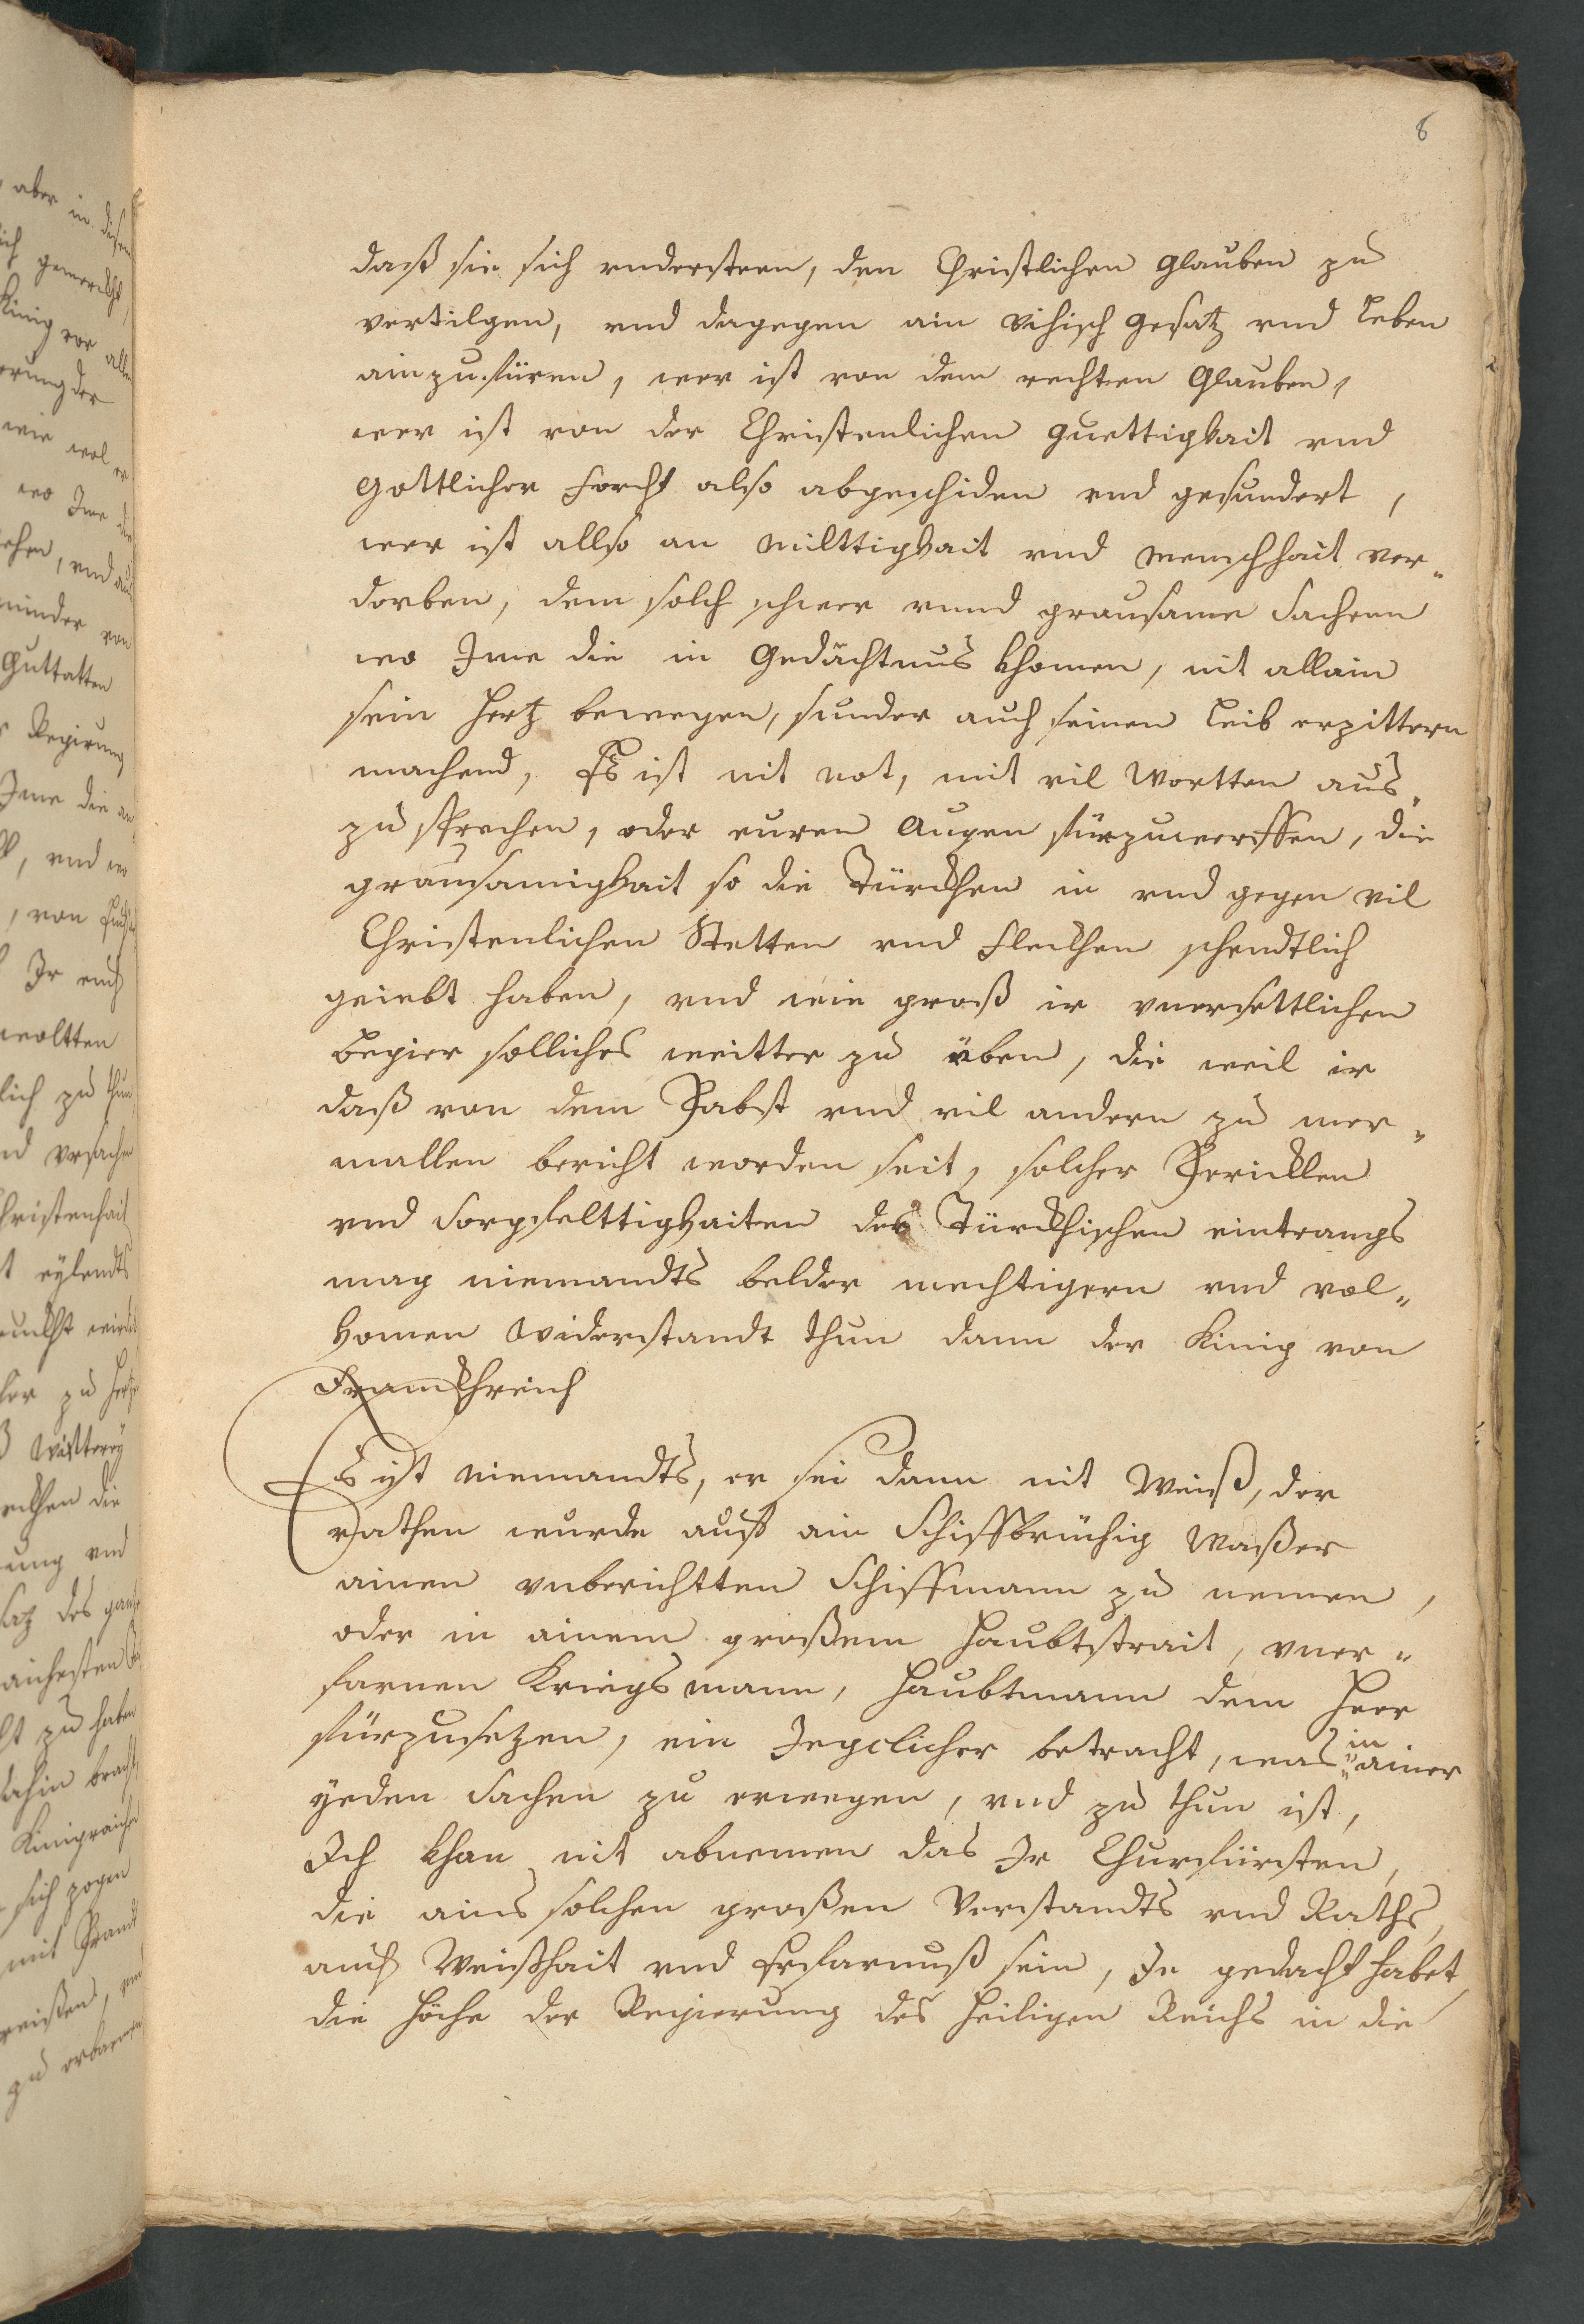 6
daß sie sich vndersteen, den Christlichen glauben zu
vertilgen, vnd dagegen ain vihisch gesatz vnd leben
ainzufüren, wer ist von dem rechten Glauben,
wer ist von der Christenlichen guettigkait vnd
gottlicher forcht also abgeschiden vnd gesundert,
wer ist allso an milttigkait vnd menschhait ver-
dorben, dem solch schwer vnnd grausame sachenn
wo Ime die in gedächtnus khomen, nit allain
sein hertz bewegen, sunder auch seinen leib erzittern
machend, Es ist nit not, mit vil wortten aus-
zusprechen, oder euren augen fürzuwerffen, die
grausamigkait so die Türckhen in vnd gegen vil
Christenlichen Stetten vnd fleckhen schendtlich
geiebt haben, vnd wie groß ir vnersettlichen
begier solliches weitter zu üben, die weil ir
daß von dem Pabst vnd vil andern zu mer-
mallen bericht worden seit, solcher Pericklen
vnd sorgfelttigkaiten des Türckhischen eintrangs
mag niemandts belder mechtigern vnd vol-
komen widerstandt thun dann der Kinig von
Franckhreich
Es ist niemandts, er sei dann nit weiß, der
rathen wurde auff ain Schiffbrüchig waßer
ainen vnberichtten Schiffmann zu nemen,
oder in ainem großem haubtstrait, vner-
farnen Kriegsmann, haubtmann dem heer
fürzusetzen, ein Jegclicher betracht, was in ainer
yeden sachen zu erwegen, vnd zu thun ist,
Ich khan nit abnemen das Ir Churfürsten,
die ains solchen großen Verstandts vnd Raths,
auch weißhait vnd erfarnuß sein, Je gedacht habet,
die höche der Regierung des heiligen Reichs in die
aber in disen
gemerckht,
Kinig vor allen
wie wol er
wo Ime die
minder von
guttatten
Regirung
Ime die an
Ir euch
woltten
zu thun
vrsachen
Christenhait
eylendts
zu haben
sich zogen
zu erbarmen